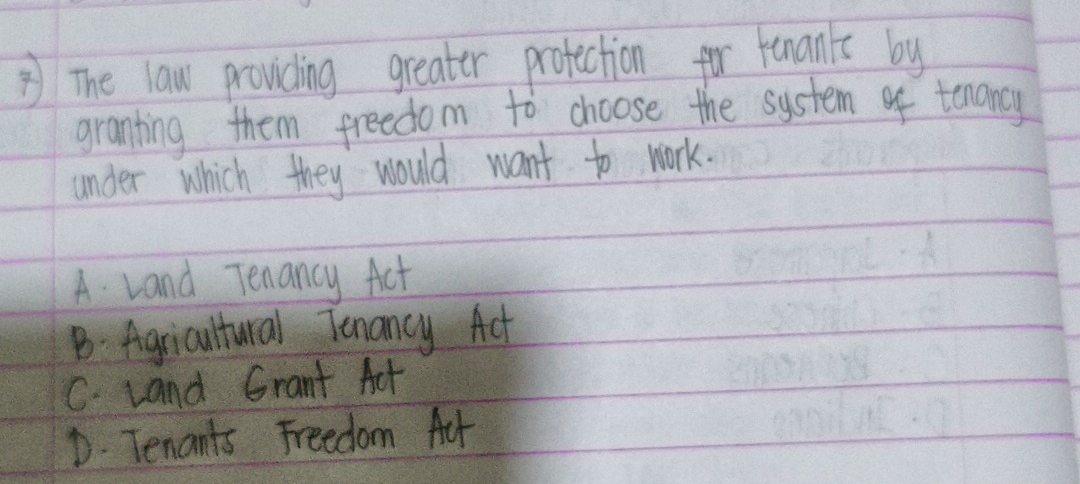 7) The law providing greater protection for tenants by
granting them freedom to choose the system of tenancy
under which they would want to work.
A. Land Tenancy Act
B. Agricultural Tenancy Act
C. Land Grant Act
D. Tenants Freedom Act